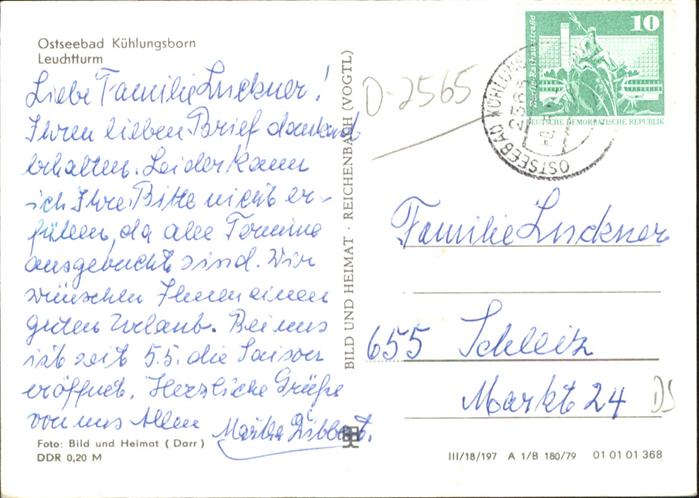 Ostseebad Kühlungsborn
Leuchtturm
Liebe Familie Luckner!
Ihren lieben Brief dankend
erhalten. Leider kann
ich Ihre Bitte nicht er-
füllen, da alle Termine
ausgebucht sind. Wir
wünschen Ihnen einen
guten Urlaub. Bei uns
ist seit 5.5. die Saison
eröffnet. Herzliche Grüße
von uns Allen Martha
Foto: Bild und Heimat (Darr)
DDR 0,20 M
BILD UND HEIMAT · REICHENBACH (VOGTL)
D-2565
10
DEUTSCHE DEMOKRATISCHE REPUBLIK
OSTSEEBAD KÜHLUNGS
Familie Luckner
655 Schleiz
Markt 24
DS
III/18/197 A 1/B 180/79 01 01 01 368